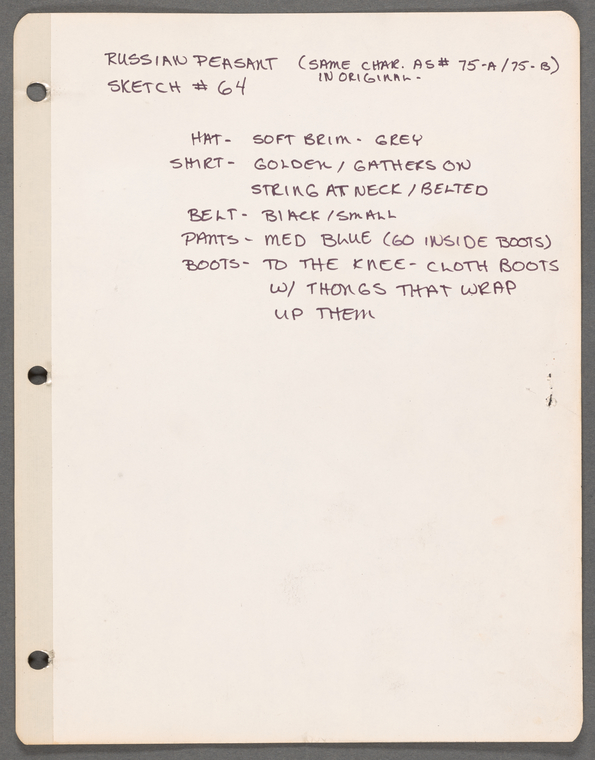 RUSSIAN PEASANT (SAME CHAR. AS # 75-A/75-B)
IN ORIGINAL-
SKETCH # 64
HAT- SOFT BRIM - GREY
SHIRT- GOLDEN / GATHERS ON
STRING AT NECK / BELTED
BELT- BLACK/SMALL
PANTS- MED BLUE (GO INSIDE BOOTS)
BOOTS- TO THE KNEE- CLOTH BOOTS
W/ THONGS THAT WRAP
UP THEM